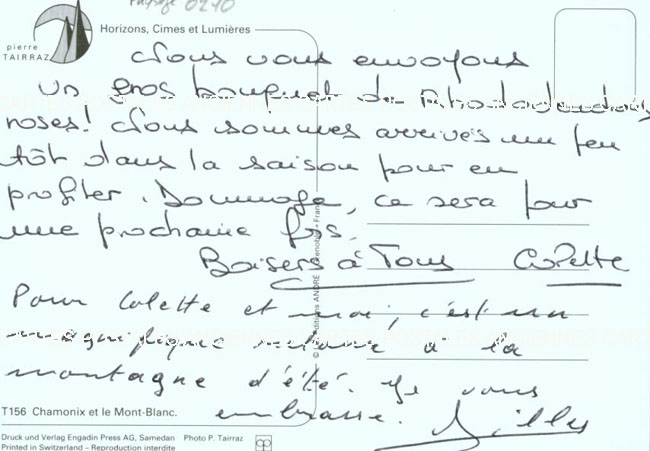 Paysage 0270
Horizons, Cimes et Lumières
pierre
TAIRRAZ
Nous vous envoyons
un gros bouquet de Rhododendrons
roses! Nous sommes arrivés un peu
tôt dans la saison pour en
profiter. Dommage, ce sera pour
une prochaine fois.
Baisers à Tous Colette
Pour Colette et moi, c'est un
magnifique retour à la
montagne d'été. Je vous
embrasse. Gilles
T156 Chamonix et le Mont-Blanc.
Druck und Verlag Engadin Press AG, Samedan Photo P. Tairraz
Printed in Switzerland – Reproduction interdite
© Editions ANDRÉ Grenoble - France
CARTES POSTALES ANCIENNES